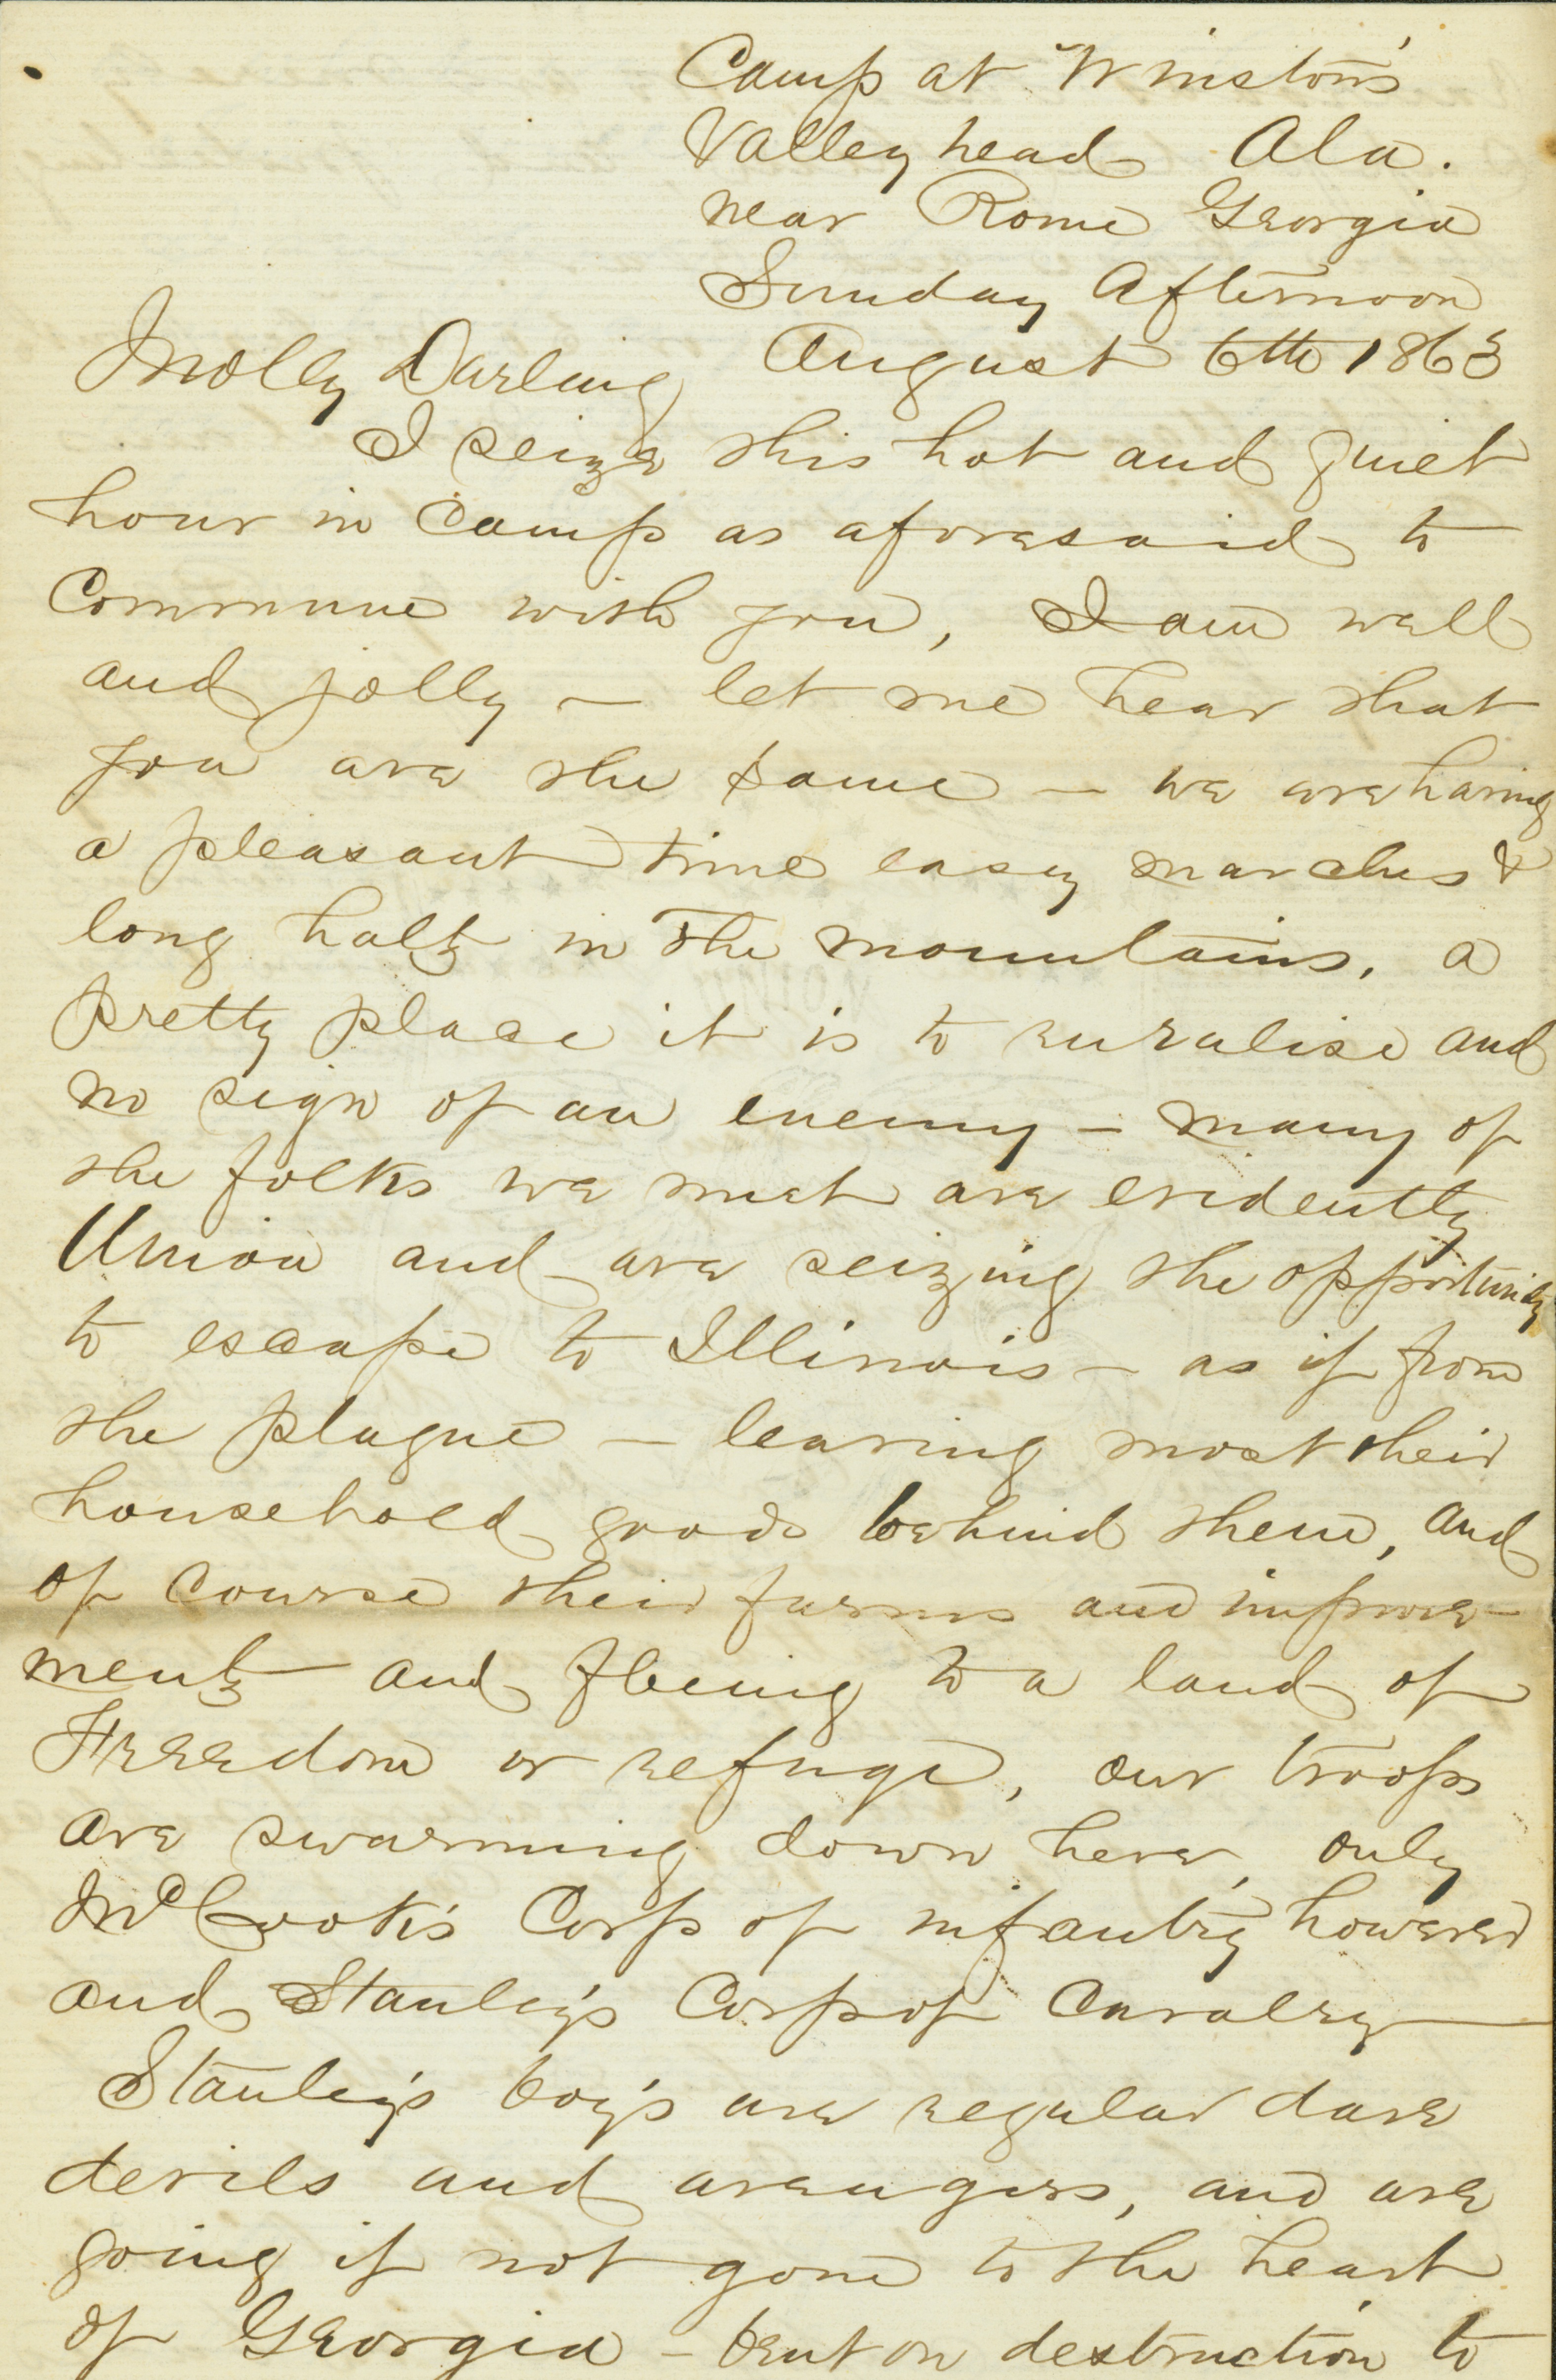 Camp at Winston's
Valley head Ala.
near Rome Georgia
Sunday Afternoon
August 6th 1863
Molly Darling
I seize this hot and quiet
hour in Camp as aforesaid to
Commune with you, I am well
and jolly — let me hear that
you are the same — we are having
a pleasant time easy marches &
long halts in the mountains, a
pretty place it is to ruralise and
no sign of an enemy — many of
the folks we meet are evidently
Union and are seizing the opportunity
to escape to Illinois — as if from
the plague — leaving most their
household goods behind them, and
of course their farms and improve-
ments and fleeing to a land of
Freedom or refuge, our troops
are swarming down here, only
McCook's Corp of infantry however
and Stanley's Corp of Cavalry —
Stanley's boy's are regular dare
devils and avengers, and are
going if not gone to the heart
of Georgia — bent on destruction to